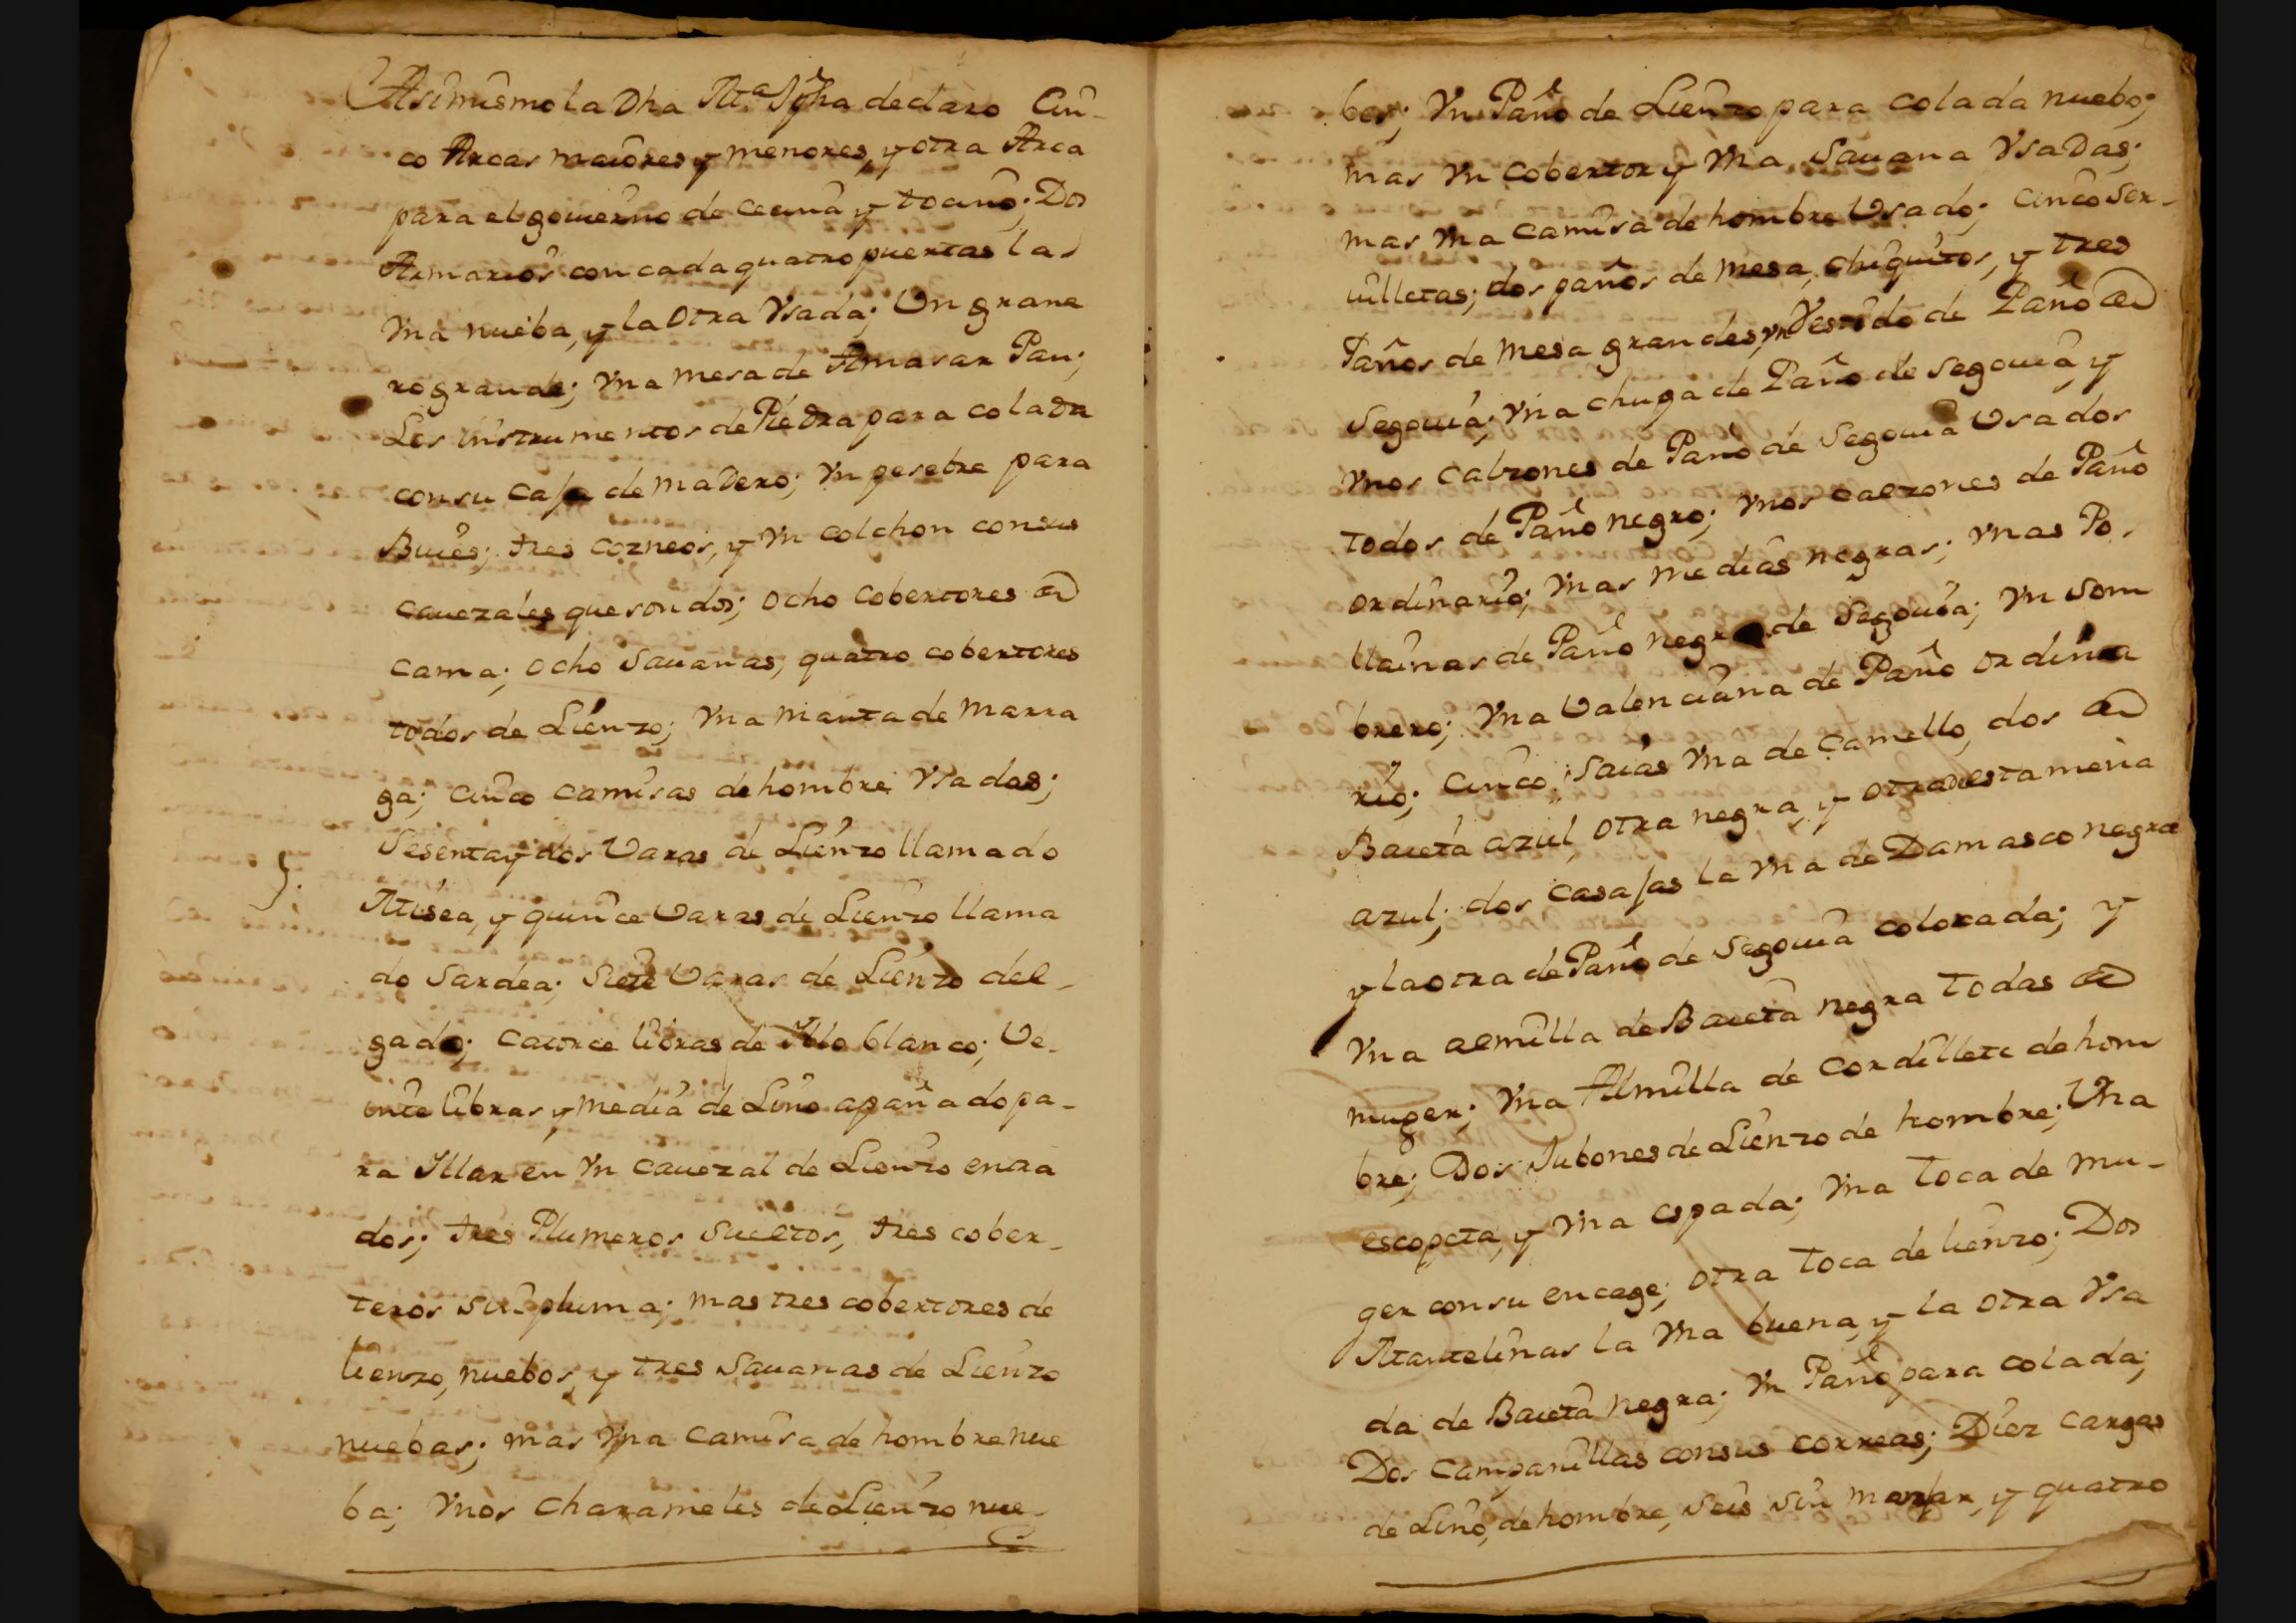 Asimismo la Dha Ma Jpha declaro Cin-
co Arcas maiores y menores, y otra Arca
para el gouierno de cecina y tocino; Dos
Armarios con cada quatro puertas la
Vna nueba, y la otra Vsada; Un grane
ro grande; Vna mesa de Amasar Pan;
Los instrumentos de Piedra para colada
con su caja de madero; Vn pesebre para
Buies; tres cozneos, y Vn colchon con sus
cauezales que son dos; ocho cobertores de
cama; ocho Sauanas, quatro cobertores
todos de Lienzo; Vna manta de marra
ga; cinco camisas de hombre Vsadas;
Sesenta y dos Varas de Lienzo llamado
Misea, y quince Varas de Lienzo llama
do Sardea; Siete Varas de Lienzo del-
gado; catorce libras de Illo blanco; Ve-
inte libras y media de Lino apañado pa-
ra Illar en Vn cauezal de Lienzo entra
dos; tres Plumeros sueltos, tres cober-
teros sin pluma; mas tres cobertores de
lienzo, nuebos, y tres Sauanas de Lienzo
nuebas; mas Vna camisa de hombre nue
ba; Vnos charameles de Lienzo nue-
bos; Vn Paño de Lienzo para colada nuebo;
mas Vn cobertor y Vna Sauana Vsadas;
mas Vna camisa de hombre Usado; cinco Ser-
uilletas; dos paños de mesa, chiquitos, y tres
Paños de mesa grandes, Vn Vestido de Paño de
Segouia; Vna chupa de Paño de Segouia y
Vnos calzones de Paño de Segouia Usados
todos de Paño negro; Vnos calzones de Paño
ordinario; Vnas medias negras; Vnas Po-
llainas de Paño negro de Segouia; Vn Som
brero; Vna Valenciana de Paño ordina
rio; cinco Saias Vna de Camello, dos de
Baieta azul, otra negra, y otra de estameña
azul; dos casajas la Vna de Damasco negra
y la otra de Paño de Segouia colorada; y
Vna almilla de Baieta negra todas de
muger; Vna Almilla de Cordillete de hom
bre; Dos Jubones de Lienzo de hombre; Vna
escopeta, y Vna espada; Vna toca de mu-
ger con su encage; otra toca de lienzo; Dos
Mantelinas la Vna buena, y la otra Vsa
da de Baieta negra; Vn Paño para colada;
Dos campanillas con sus correas; Diez cargas
de Lino, de hombre, seis sin majar, y quatro